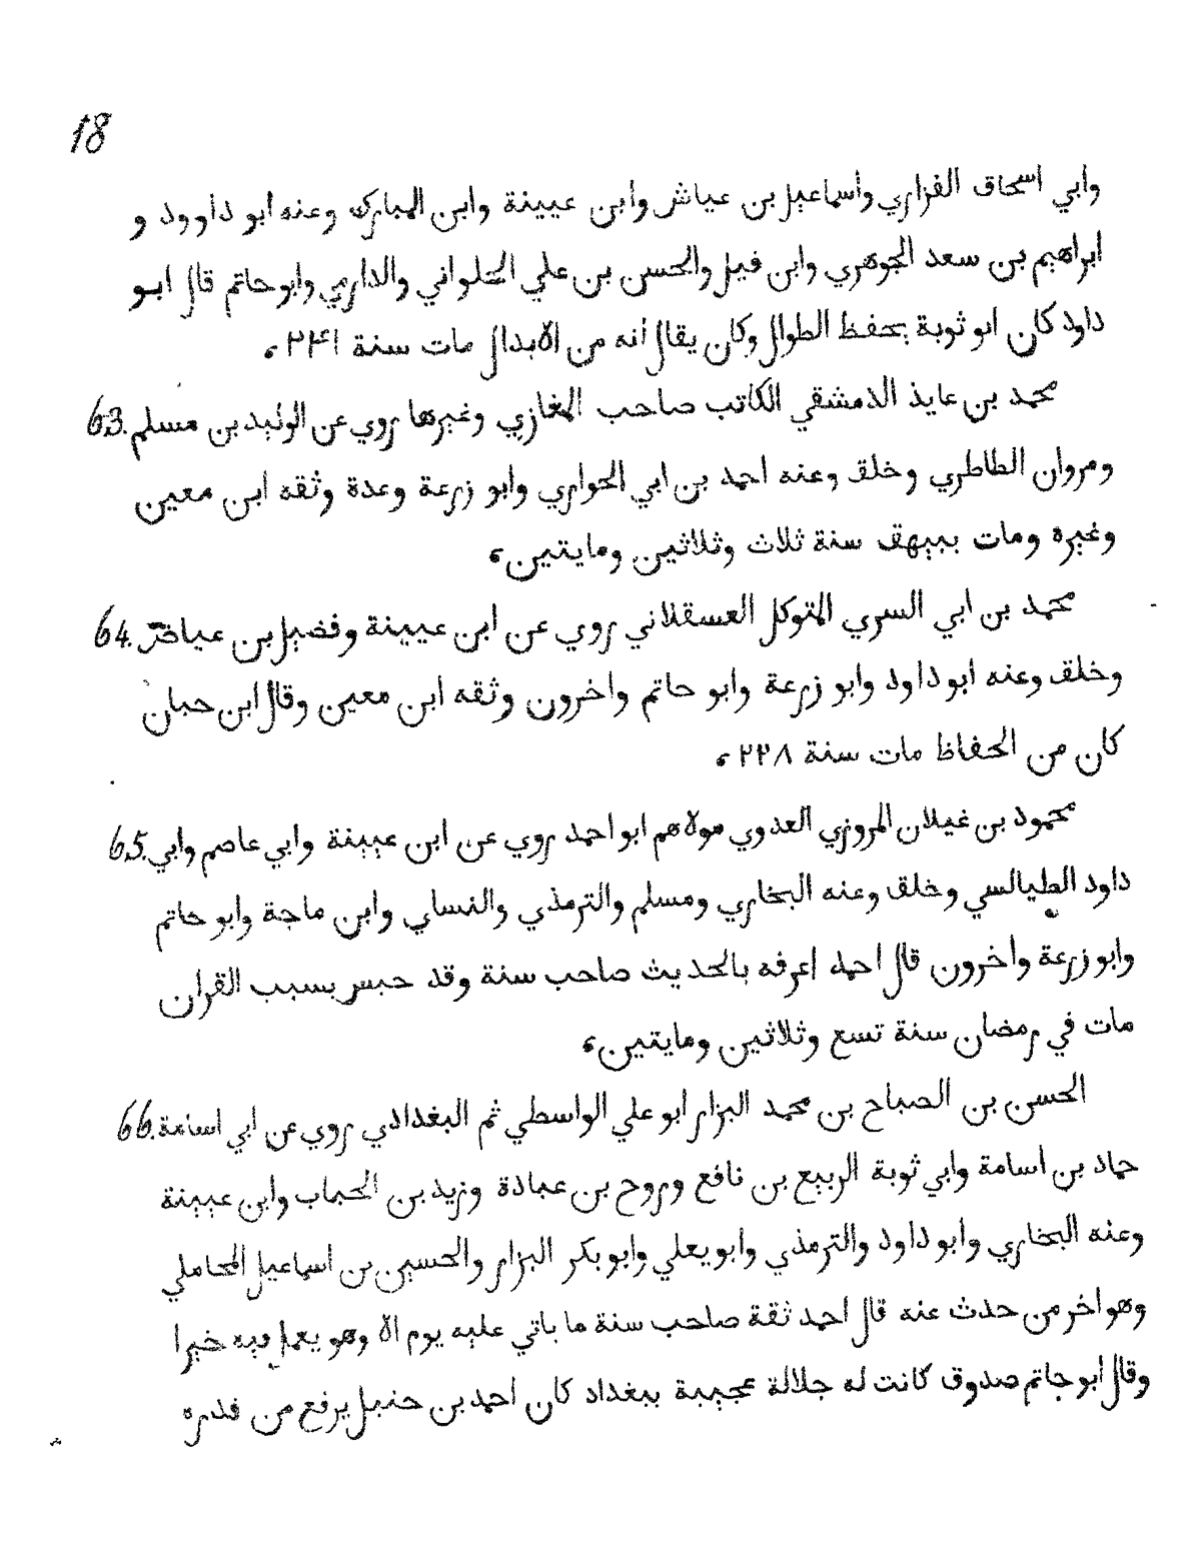 18
وابي اسحاق الفزاري واسماعيل بن عياش وابن عيينة وابن المبارك وعنه ابو داوود و
ابراهيم بن سعد الجوهري وابن فيل والحسن بن علي الحلواني والدارمي وابو حاتم قال ابو
داود كان ابو ثوبة يحفظ الطوال وكان يقال انه من الابدال مات سنة ٢٤١ ،
63. محمد بن عايذ الدمشقي الكاتب صاحب المغازي وغيرها روي عن الوليد بن مسلم
ومروان الطاطري وخلق وعنه احمد بن ابي الحواري وابو زرعة وعدة وثقه ابن معين
وغيره ومات ببيهق سنة ثلاث وثلاثين ومايتين ،
64. محمد بن ابي السري المتوكل العسقلاني روي عن ابن عيينة وفضيل بن عياض
وخلق وعنه ابو داود وابو زرعة وابو حاتم واخرون وثقه ابن معين وقال ابن حبان
كان من الحفاظ مات سنة ٢٣٨ ،
65. محمود بن غيلان المروزي العدوي مولاهم ابو احمد روي عن ابن عيينة وابي عاصم وابي
داود الطيالسي وخلق وعنه البخاري ومسلم والترمذي والنساي وابن ماجة وابو حاتم
وابو زرعة واخرون قال احمد اعرفه بالحديث صاحب سنة وقد حبس بسبب القران
مات في رمضان سنة تسع وثلاثين ومايتين ،
66. الحسن بن الصباح بن محمد البزار ابو علي الواسطي ثم البغدادي روي عن ابي اسامة
حماد بن اسامة وابي ثوبة الربيع بن نافع وروح بن عبادة وزيد بن الحباب وابن عيينة
وعنه البخاري وابو داود والترمذي وابو يعلي وابو بكر البزار والحسين بن اسماعيل المحاملي
وهو اخر من حدث عنه قال احمد ثقة صاحب سنة ما ياتي عليه يوم الا وهو يعمل فيه خيرا
وقال ابو حاتم صدوق كانت له جلالة عجيبة ببغداد كان احمد بن حنبل يرفع من قدره